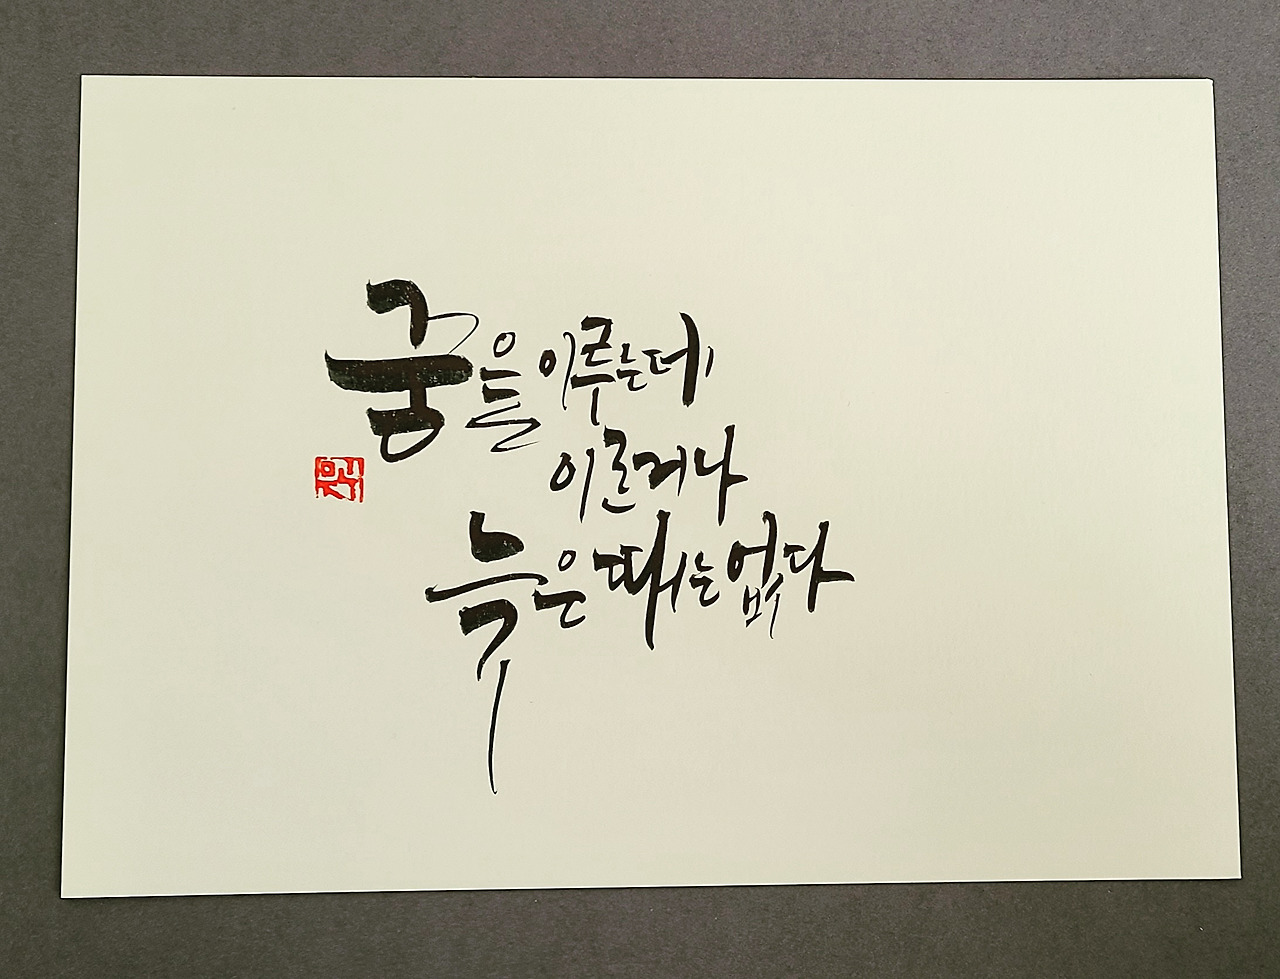 꿈을 이루는데
이르거나
늦은 때는 없다